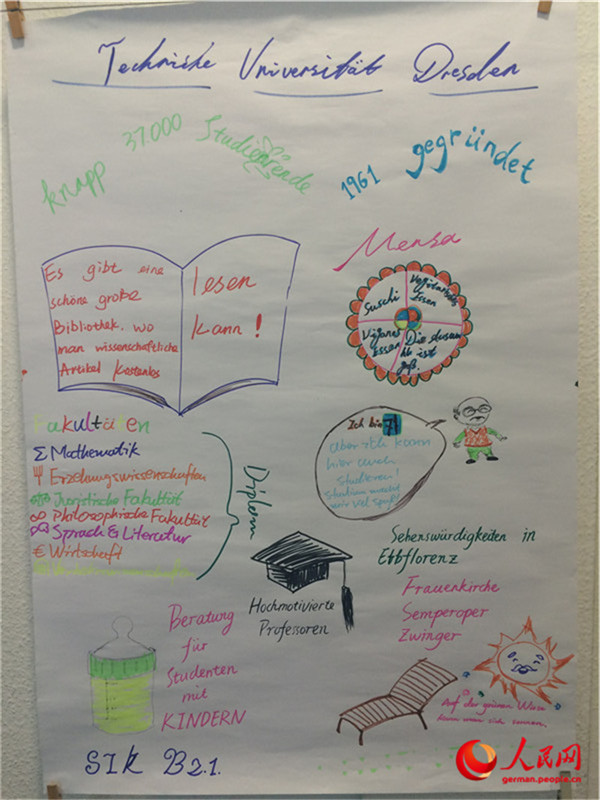 Technische Universität Dresden
knapp 37.000 Studierende
1961 gegründet
Es gibt eine
schöne große
Bibliothek. wo
man wissenschaftliche
Artikel kostenlos
lesen
kann!
Mensa
Suschi
Essen
Essen
Fakultäten
Σ Mathematik
Erziehungswissenschaften
Juristische Fakultät
Philosophische Fakultät
Sprach & Literatur
€ Wirtschaft
Diplom
Ich bin 71
aber ich kann
hier auch
studieren!
Studium macht
mir viel Spaß!
Sehenswürdigkeiten in
Elbflorenz
Frauenkirche
Semperoper
Zwinger
Hochmotivierte
Professoren
Beratung
für
Studenten
mit
KINDERN
Auf der grünen Wiese
kann man sich sonnen.
SIK B2.1.
人民网
german.people.cn